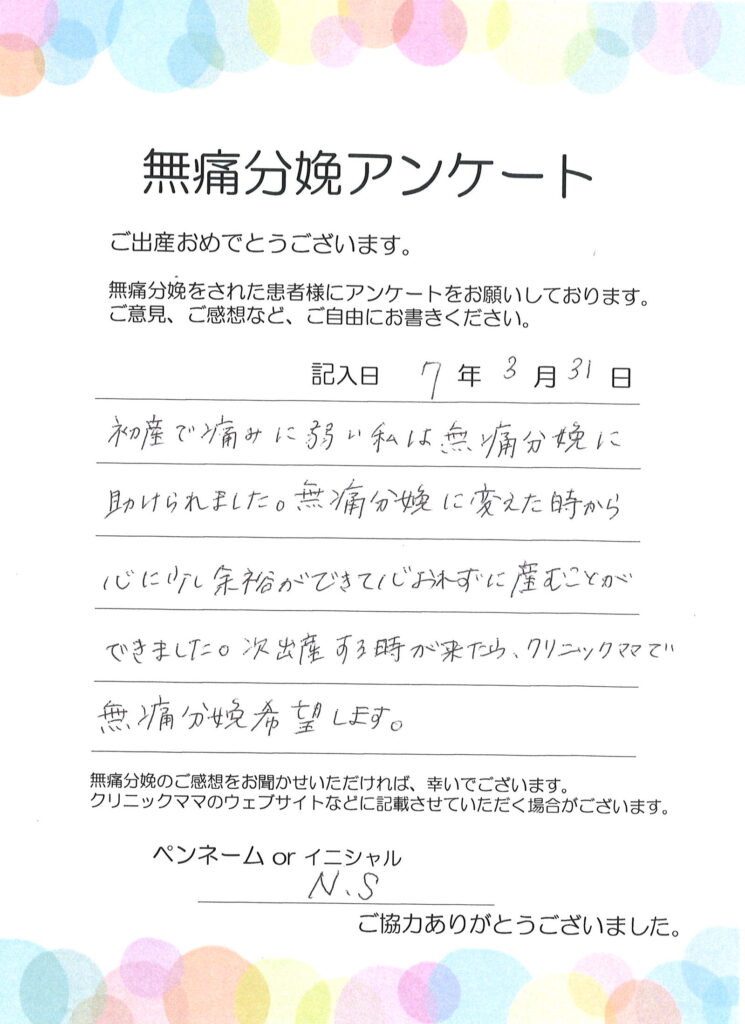 無痛分娩アンケート
ご出産おめでとうございます。
無痛分娩をされた患者様にアンケートをお願いしております。
ご意見、ご感想など、ご自由にお書きください。
記入日 7 年 3 月 31 日
初産で痛みに弱い私は無痛分娩に
助けられました。無痛分娩に変えた時から
心に少し余裕ができて心おれずに産むことが
できました。次出産する時が来たら、クリニックママで
無痛分娩希望します。
無痛分娩のご感想をお聞かせいただければ、幸いでございます。
クリニックママのウェブサイトなどに記載させていただく場合がございます。
ペンネーム or イニシャル
N.S
ご協力ありがとうございました。